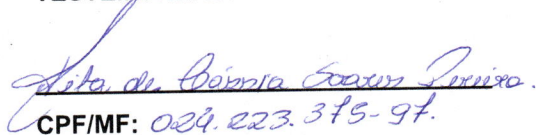 Rita de Cássia Soares Pereira.
CPF/MF: 024.223.375-97.